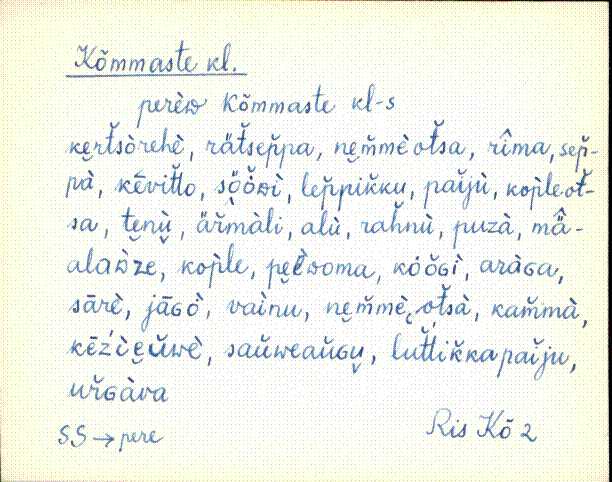 Kõmmaste kl.
perèᴅ Kõmmaste kl-s
kẹrt̆sòrehè, rät̆sep̆pa, nẹm̆mè ot̆sa, rîma, sep̆-
pà, kēvit̆to, sö̤ö̆ᴅì, lep̆pik̆ku, paĭjù, kop̀le ot̆-
sa, tenù, är̆màli, alù, rah̆nù, puzà, mä̂-
alaᴅ̆že, kop̀le, pẹl̆ᴅoma, kòŏɢì, aràɢa,
sārè, jāɢò, vaìnu, nẹm̆mè ot̆sà, kam̆mà,
kēz̀ìẹŭwè, saŭweaŭɢụ, lut̆tik̆kapaĭju,
ur̆ɢàva
SS → pere
Ris Kõ 2